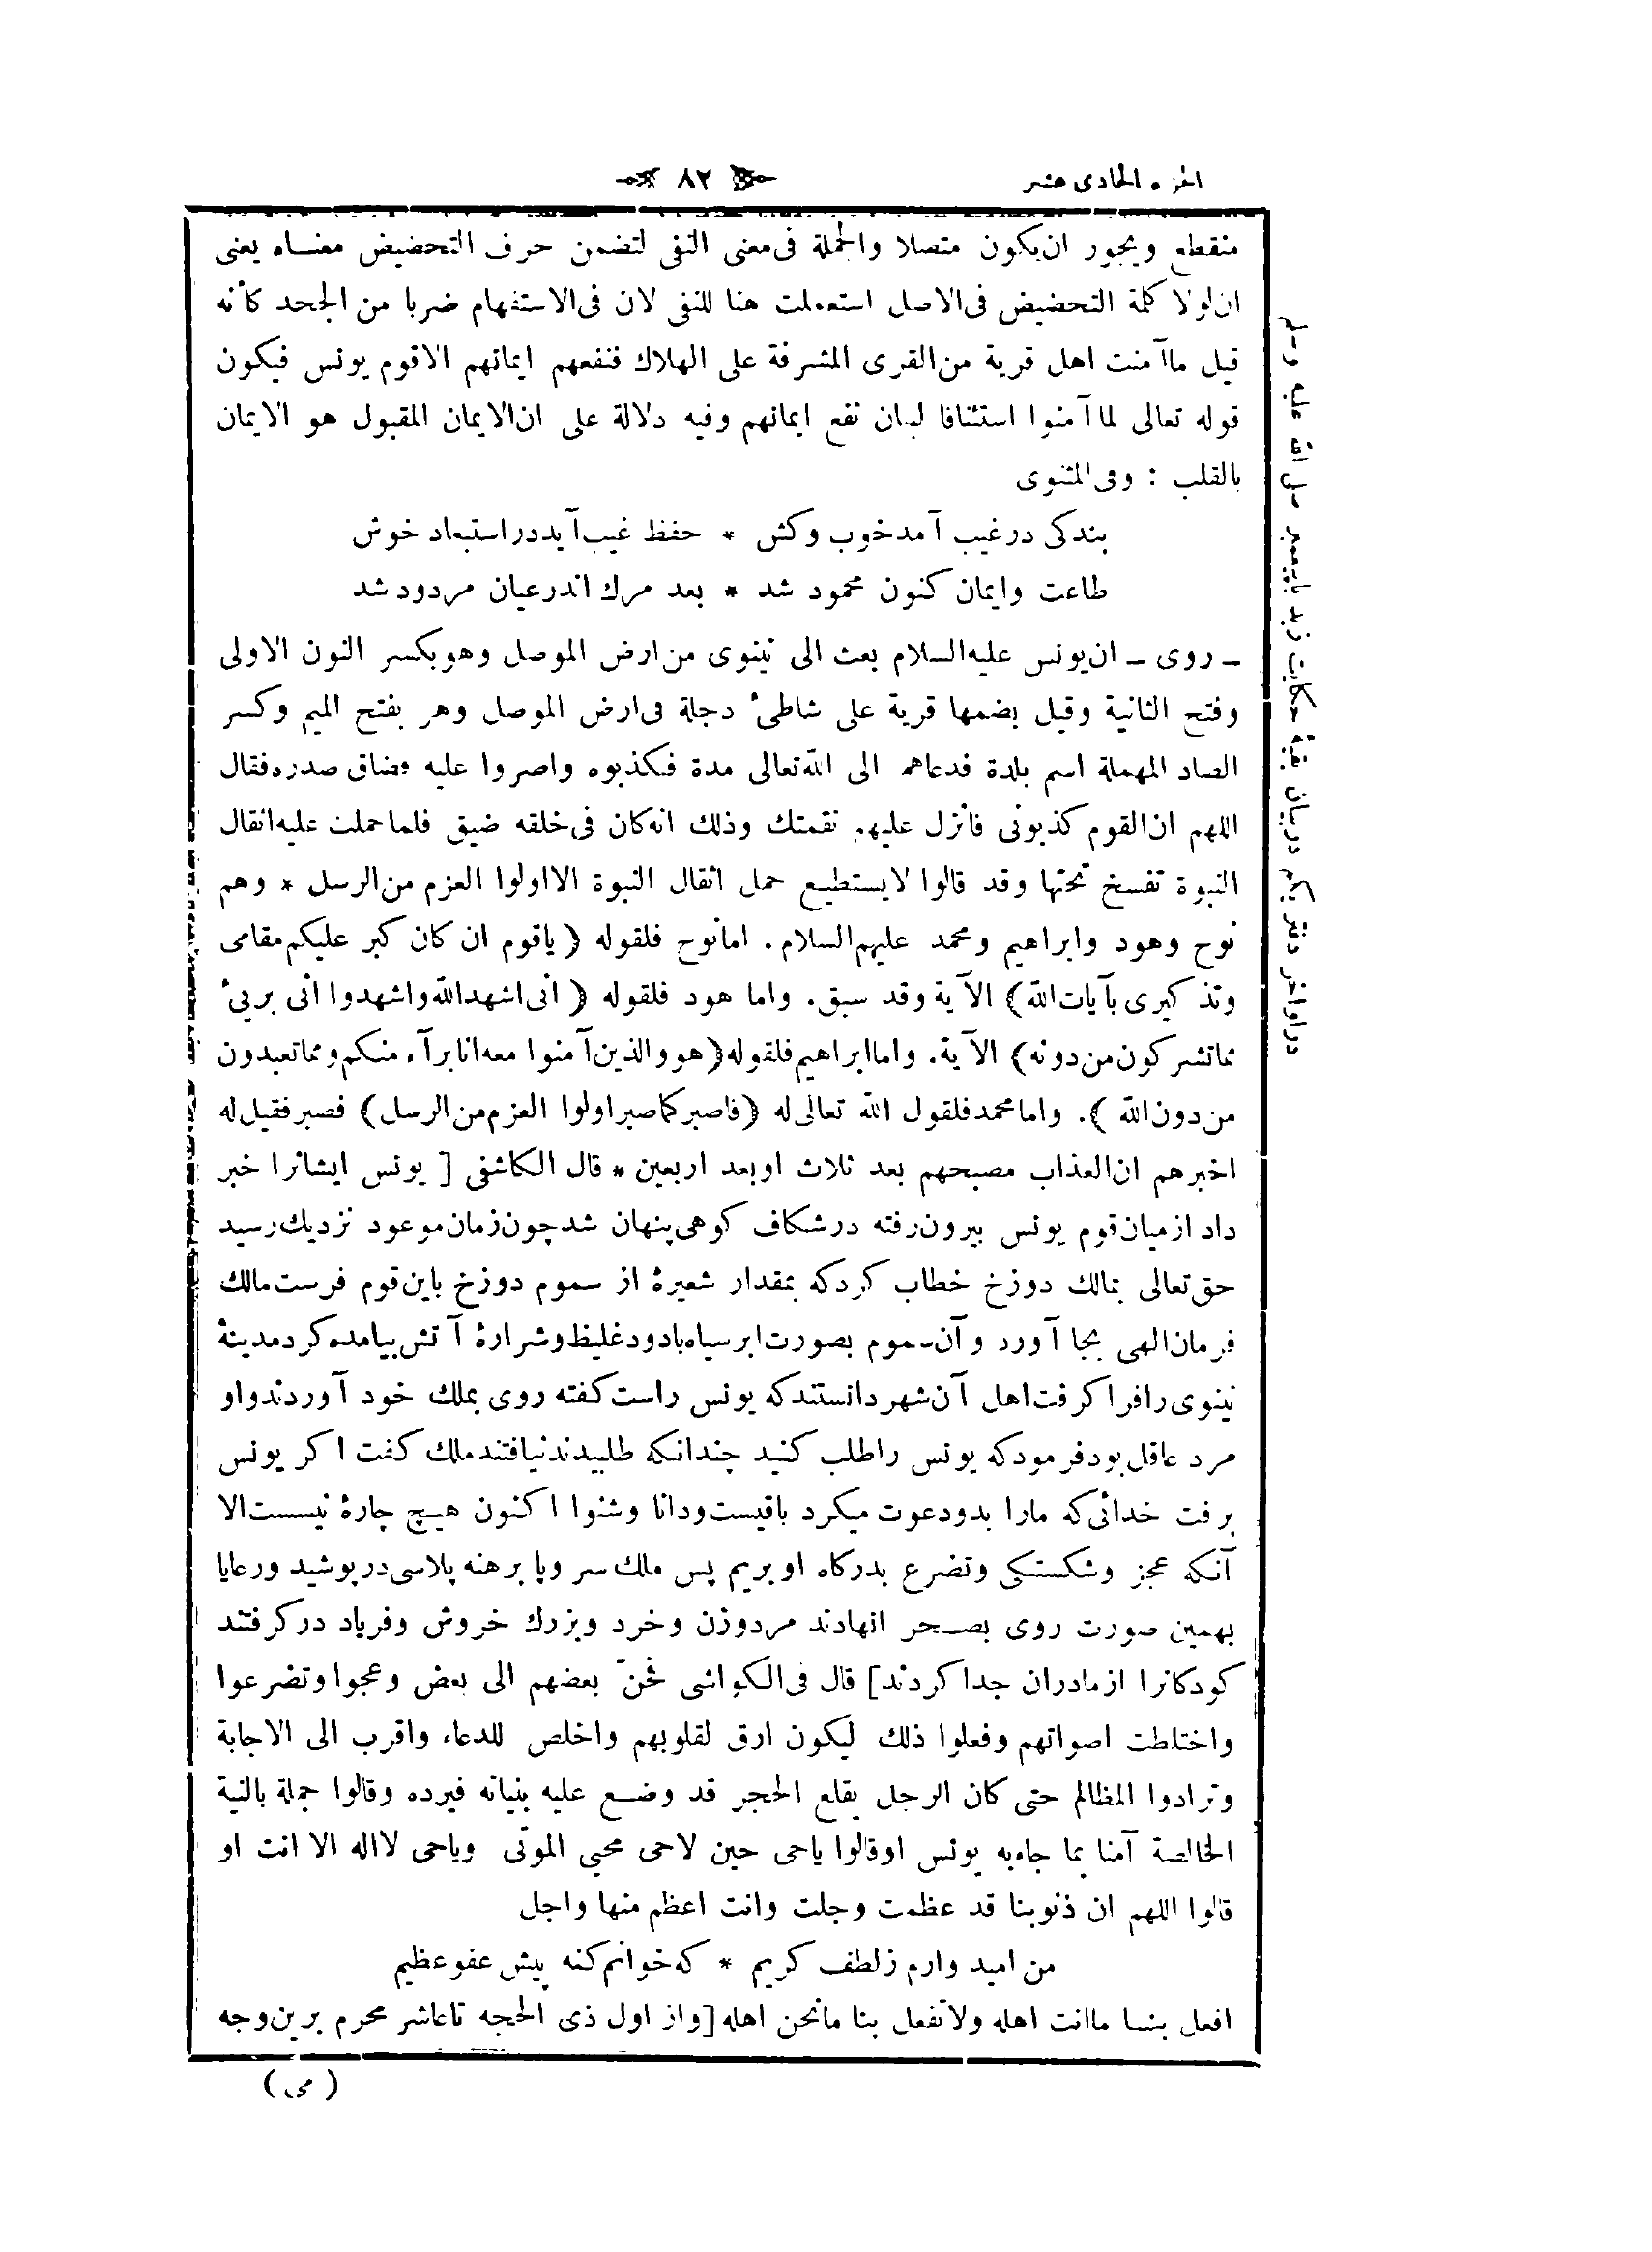 الجزء الحادى عشر
٨٢
منقطع ويجوز ان يكون متصلا والجملة فى معنى النفى لتضمن حرف التحضيض معناه يعنى
ان لولا كلمة التحضيض فى الاصل استعملت هنا للنفى لان فى الاستفهام ضربا من الجحد كأنه
قيل ماآمنت اهل قرية من القرى المشرفة على الهلاك فنفعهم ايمانهم الا قوم يونس فيكون
قوله تعالى لما آمنوا استئنافا لبيان نفع ايمانهم وفيه دلالة على ان الايمان المقبول هو الايمان
بالقلب : وفى المثنوى
بندكى درغيب آمد خوب وكش * حفظ غيب آيد در استبعاد خوش
طاعت وايمان كنون محمود شد * بعد مرك اندر عيان مردود شد
ـ روى ـ ان يونس عليه السلام بعث الى نينوى من ارض الموصل وهو بكسر النون الاولى
وفتح الثانية وقيل بضمها قرية على شاطئ دجلة فى ارض الموصل وهر بفتح الميم وكسر
الصاد المهملة اسم بلدة فدعاهم الى الله تعالى مدة فكذبوه واصروا عليه فضاق صدره فقال
اللهم ان القوم كذبونى فانزل عليهم نقمتك وذلك انه كان فى خلقه ضيق فلما حملت عليه اثقال
النبوة تفسخ تحتها وقد قالوا لا يستطيع حمل اثقال النبوة الا اولوا العزم من الرسل * وهم
نوح وهود وابراهيم ومحمد عليهم السلام . اما نوح فلقوله ( ياقوم ان كان كبر عليكم مقامى
وتذكيرى بآيات الله ) الآية وقد سبق . واما هود فلقوله ( انى اشهد الله واشهدوا انى بريئ
مما تشركون من دونه ) الآية . واما ابراهيم فلقوله ( هو والذين آمنوا معه انا برآء منكم ومما تعبدون
من دون الله ) . واما محمد فلقول الله تعالى له ( فاصبر كما صبر اولوا العزم من الرسل ) فصبر فقيل له
اخبرهم ان العذاب مصبحهم بعد ثلاث او بعد اربعين * قال الكاشفى [ يونس ايشانرا خبر
داد از ميان قوم يونس بيرون رفته در شكاف كوهى پنهان شد چون زمان موعود نزديك رسيد
حق تعالى بمالك دوزخ خطاب كرد كه بمقدار شعيرۀ از سموم دوزخ باين قوم فرست مالك
فرمان الهى بجا آورد و آن سموم بصورت ابر سياه با دود غليظ وشرارۀ آتش بيامده كرد مدينۀ
نينوى را فرا كرفت اهل آن شهر دانستند كه يونس راست كفته روى بملك خود آوردند واو
مرد عاقل بود فرمود كه يونس را طلب كنيد چندانكه طلبيدند نيافتند ملك كفت اكر يونس
برفت خدائى كه مارا بدو دعوت ميكرد باقيست ودانا وشنوا اكنون هيچ چارۀ نيست الا
آنكه عجز وشكستكى وتضرع بدركاه او بريم پس ملك سر وپا برهنه پلاسى درپوشيد ورعايا
بهمين صورت روى بصحر انهادند مرد وزن وخرد وبزرك خروش وفرياد در كرفتند
كودكانرا از مادران جدا كردند ] قال فى الكواشى فحنّ بعضهم الى بعض وعجوا وتضرعوا
واختلطت اصواتهم وفعلوا ذلك ليكون ارق لقلوبهم واخلص للدعاء واقرب الى الاجابة
وترادوا المظالم حتى كان الرجل يقلع الحجر قد وضع عليه بنيانه فيرده وقالوا جملة بالنية
الخالصة آمنا بما جاء به يونس اوقالوا ياحى حين لاحى محيى الموتى وياحى لااله الا انت او
قالوا اللهم ان ذنوبنا قد عظمت وجلت وانت اعظم منها واجل
من اميد وارم ز لطف كريم * كه خوانم كنه پيش عفو عظيم
افعل بنا ماانت اهله ولا تفعل بنا مانحن اهله [ واز اول ذى الحجه تا عاشر محرم برين وجه
در اواخر دفتر يكم در بيان بقيۀ حكايت زيد با پيغمبر صلى الله عليه وسلم